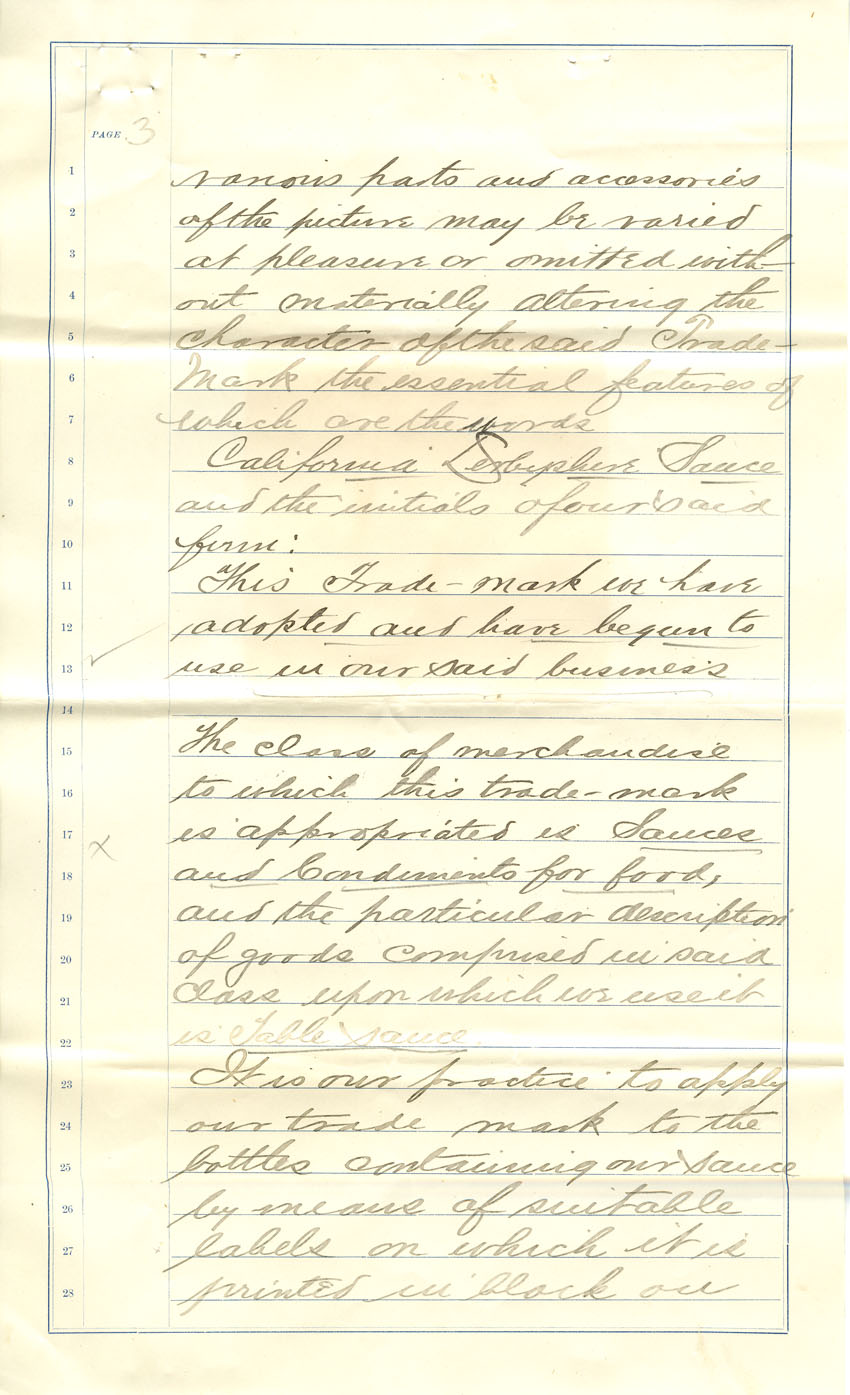 PAGE 3
1 various parts and accessories
2 of the picture may be varied
3 at pleasure or omitted with-
4 out materially altering the
5 character of the said Trade-
6 Mark the essential features of
7 which are the words
8 California Derbyshire Sauce
9 and the initials of our said
10 firm:
11 This Trade-mark we have
12 adopted and have begun to
13 use in our said business
14
15 The class of merchandise
16 to which this trade-mark
17 is appropriated is Sauces
18 and Condiments for food,
19 and the particular description
20 of goods comprised in said
21 class upon which we use it
22 is Table sauce.
23 It is our practice to apply
24 our trade mark to the
25 bottles containing our sauce
26 by means of suitable
27 labels on which it is
28 printed in black on